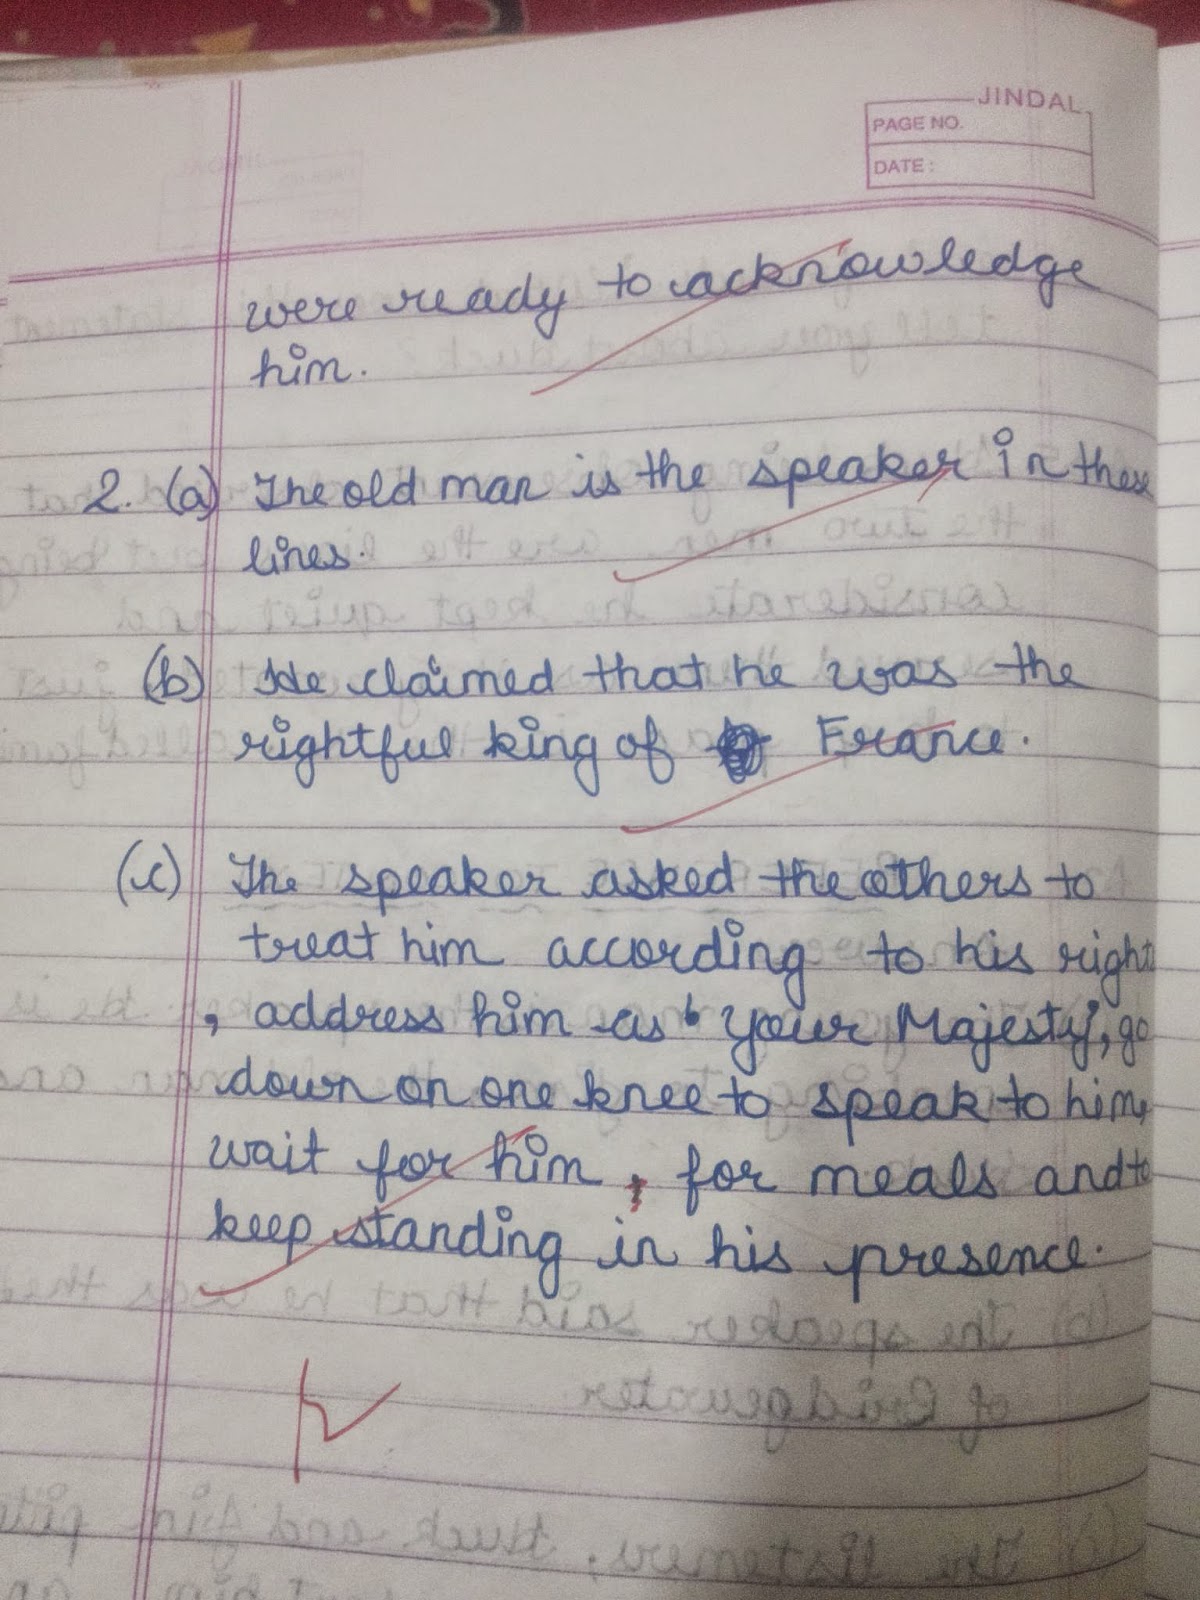 JINDAL
PAGE NO.
DATE :
were ready to acknowledge
him.
2. (a) The old man is the speaker in these
lines.
(b) He claimed that he was the
rightful king of France.
(c) The speaker asked the others to
treat him according to his right
, address him as 'Your Majesty', go
down on one knee to speak to him,
wait for him, for meals and to
keep standing in his presence.